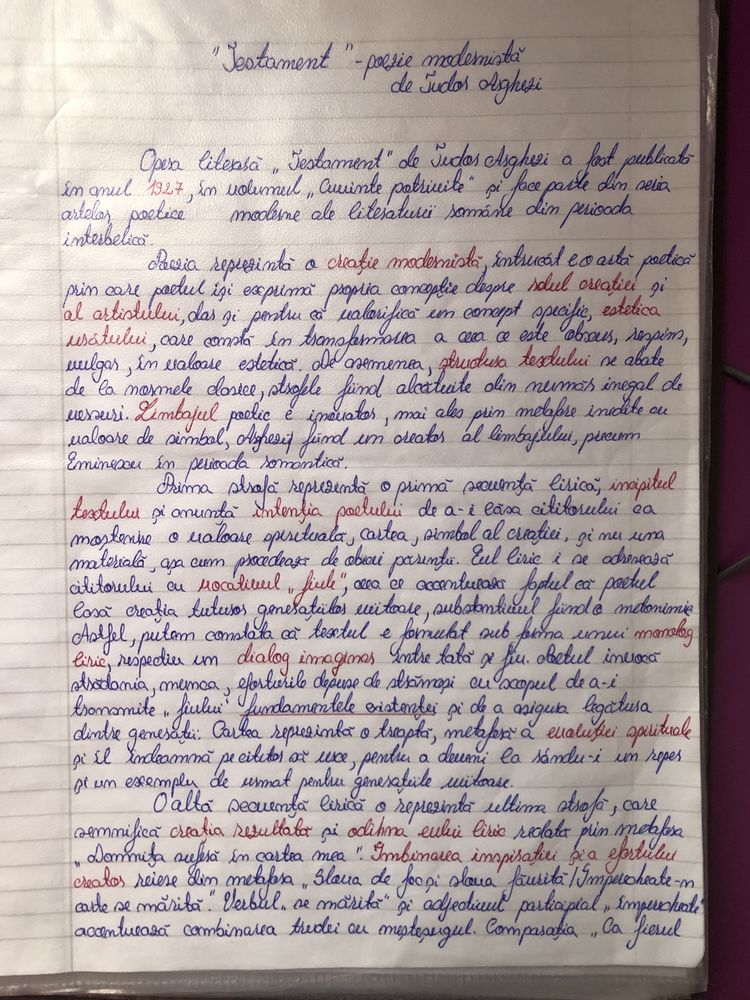 "Testament" - poezie modernistă
de Tudor Arghezi
Opera literară „Testament" de Tudor Arghezi a fost publicată
în anul 1927, în volumul „Cuvinte potrivite" și face parte din seria
artelor poetice moderne ale literaturii române din perioada
interbelică.
Poezia reprezintă o creație modernistă, întrucât e o artă poetică
prin care poetul își exprimă propria concepție despre rolul creației și
al artistului, dar și pentru că valorifică un concept specific, estetica
urâtului, care constă în transformarea a ceea ce este obscur, respins,
vulgar, în valoare estetică. De asemenea, structura textului se abate
de la normele clasice, strofele fiind alcătuite din număr inegal de
versuri. Limbajul poetic e inovator, mai ales prin metafore inedite cu
valoare de simbol, Arghezi fiind un creator al limbajului, precum
Eminescu în perioada romantică.
Prima strofă reprezintă o primă secvență lirică, incipitul
textului și anunță intenția poetului de a-i lăsa cititorului ca
moștenire o valoare spirituală, cartea, simbol al creației, și nu una
materială, așa cum procedează de obicei părinții. Eul liric i se adresează
cititorului cu vocativul „fiule", ceea ce accentuează faptul că poetul
lasă creația tuturor generațiilor viitoare, substantivul fiind o metonimie
Astfel, putem constata că textul e formulat sub forma unui monolog
liric, respectiv un dialog imaginar între tată și fiu. Poetul invocă
strădania, munca, eforturile depuse de strămoși cu scopul de a-i
transmite „fiului" fundamentele existenței și de a asigura legătura
dintre generații. Cartea reprezintă o treaptă, metaforă a evoluției spirituale
și îl îndeamnă pe cititor să urce, pentru a deveni la rându-i un reper
și un exemplu de urmat pentru generațiile viitoare.
O altă secvență lirică o reprezintă ultima strofă, care
semnifică creația rezultată și odihna eului liric redată prin metafora
„Domnița suferă în cartea mea". Îmbinarea inspirației și a efortului
creator reiese din metafora „Slova de foc și slova făurită/Împerecheate-n
carte se mărită". Verbul „se mărită" și adjectivul participial „împerecheate"
accentuează combinarea trudei cu meșteșugul. Comparația „Ca fierul